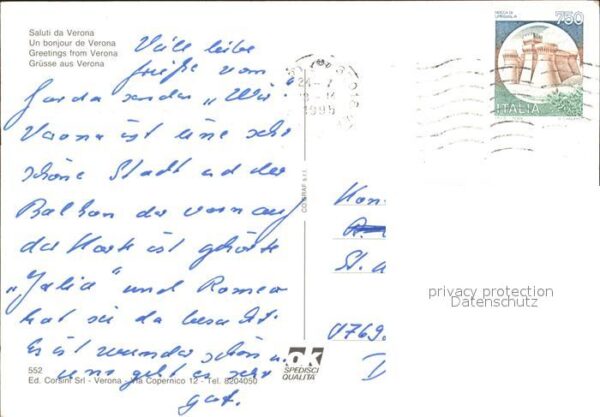 Saluti da Verona
Un bonjour de Verona
Greetings from Verona
Grüsse aus Verona
Viele liebe
Grüße vom
Garda
Verona ist eine sehr
schöne Stadt und der
Balkon der vorn auf
der Karte ist gehörte
„Julia“ und Romeo
hat sie da besucht.
Es ist wunderschön u.
uns geht es sehr
gut.
552
Ed. Corsini Srl - Verona - Via Copernico 12 - Tel. 8204050
CO GRAF s.r.l.
ok
SPEDISCI
QUALITÀ
1995
ROCCA DI
URBISAGLIA
750
ITALIA
St.
privacy protection
Datenschutz
D